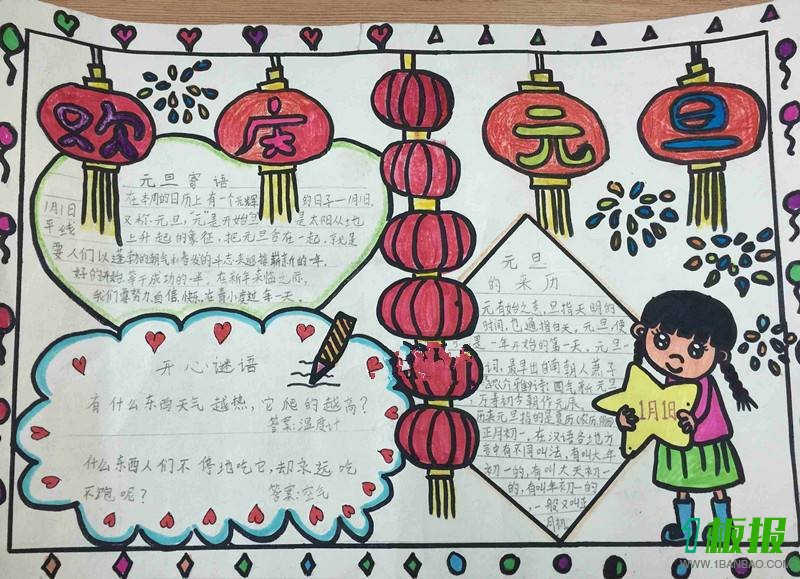 欢庆元旦
元旦寄语
1月1日 在本周的日历上有一个光辉的日子一1月1日.
又称元旦,"元"是开始
是太阳从地
平线上升起的象征,把元旦合在一起,就是
要人们以蓬勃的朝气和奋发的斗志来迎接崭新的一年.
好的开始等于成功的一半,在新年来临之际,
我们要努力,自信,快乐,
每一天。
开心谜语
有什么东西天气越热,它爬的越高?
答案:温度计
什么东西人们不停地吃它,却永远吃
不饱呢?
答案:空气
元旦
的来历
元有始之意,旦指天明的
时间,也通指白天,元旦,便
是一年开始的第一天,元旦一
词,最早出自南朝人萧子
元旦
万寿初今朝作礼辰。
历来元旦指的是
正月初一,在汉语各地方
言中有不同叫法,有叫大年
初一的,有叫大天初一
的,有叫年初一的
,一般又叫正
月初
1月1日
1板报
WWW.1BANBAO.COM